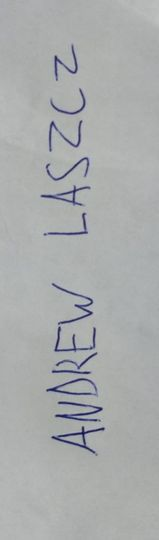 ANDREW LASZCZ